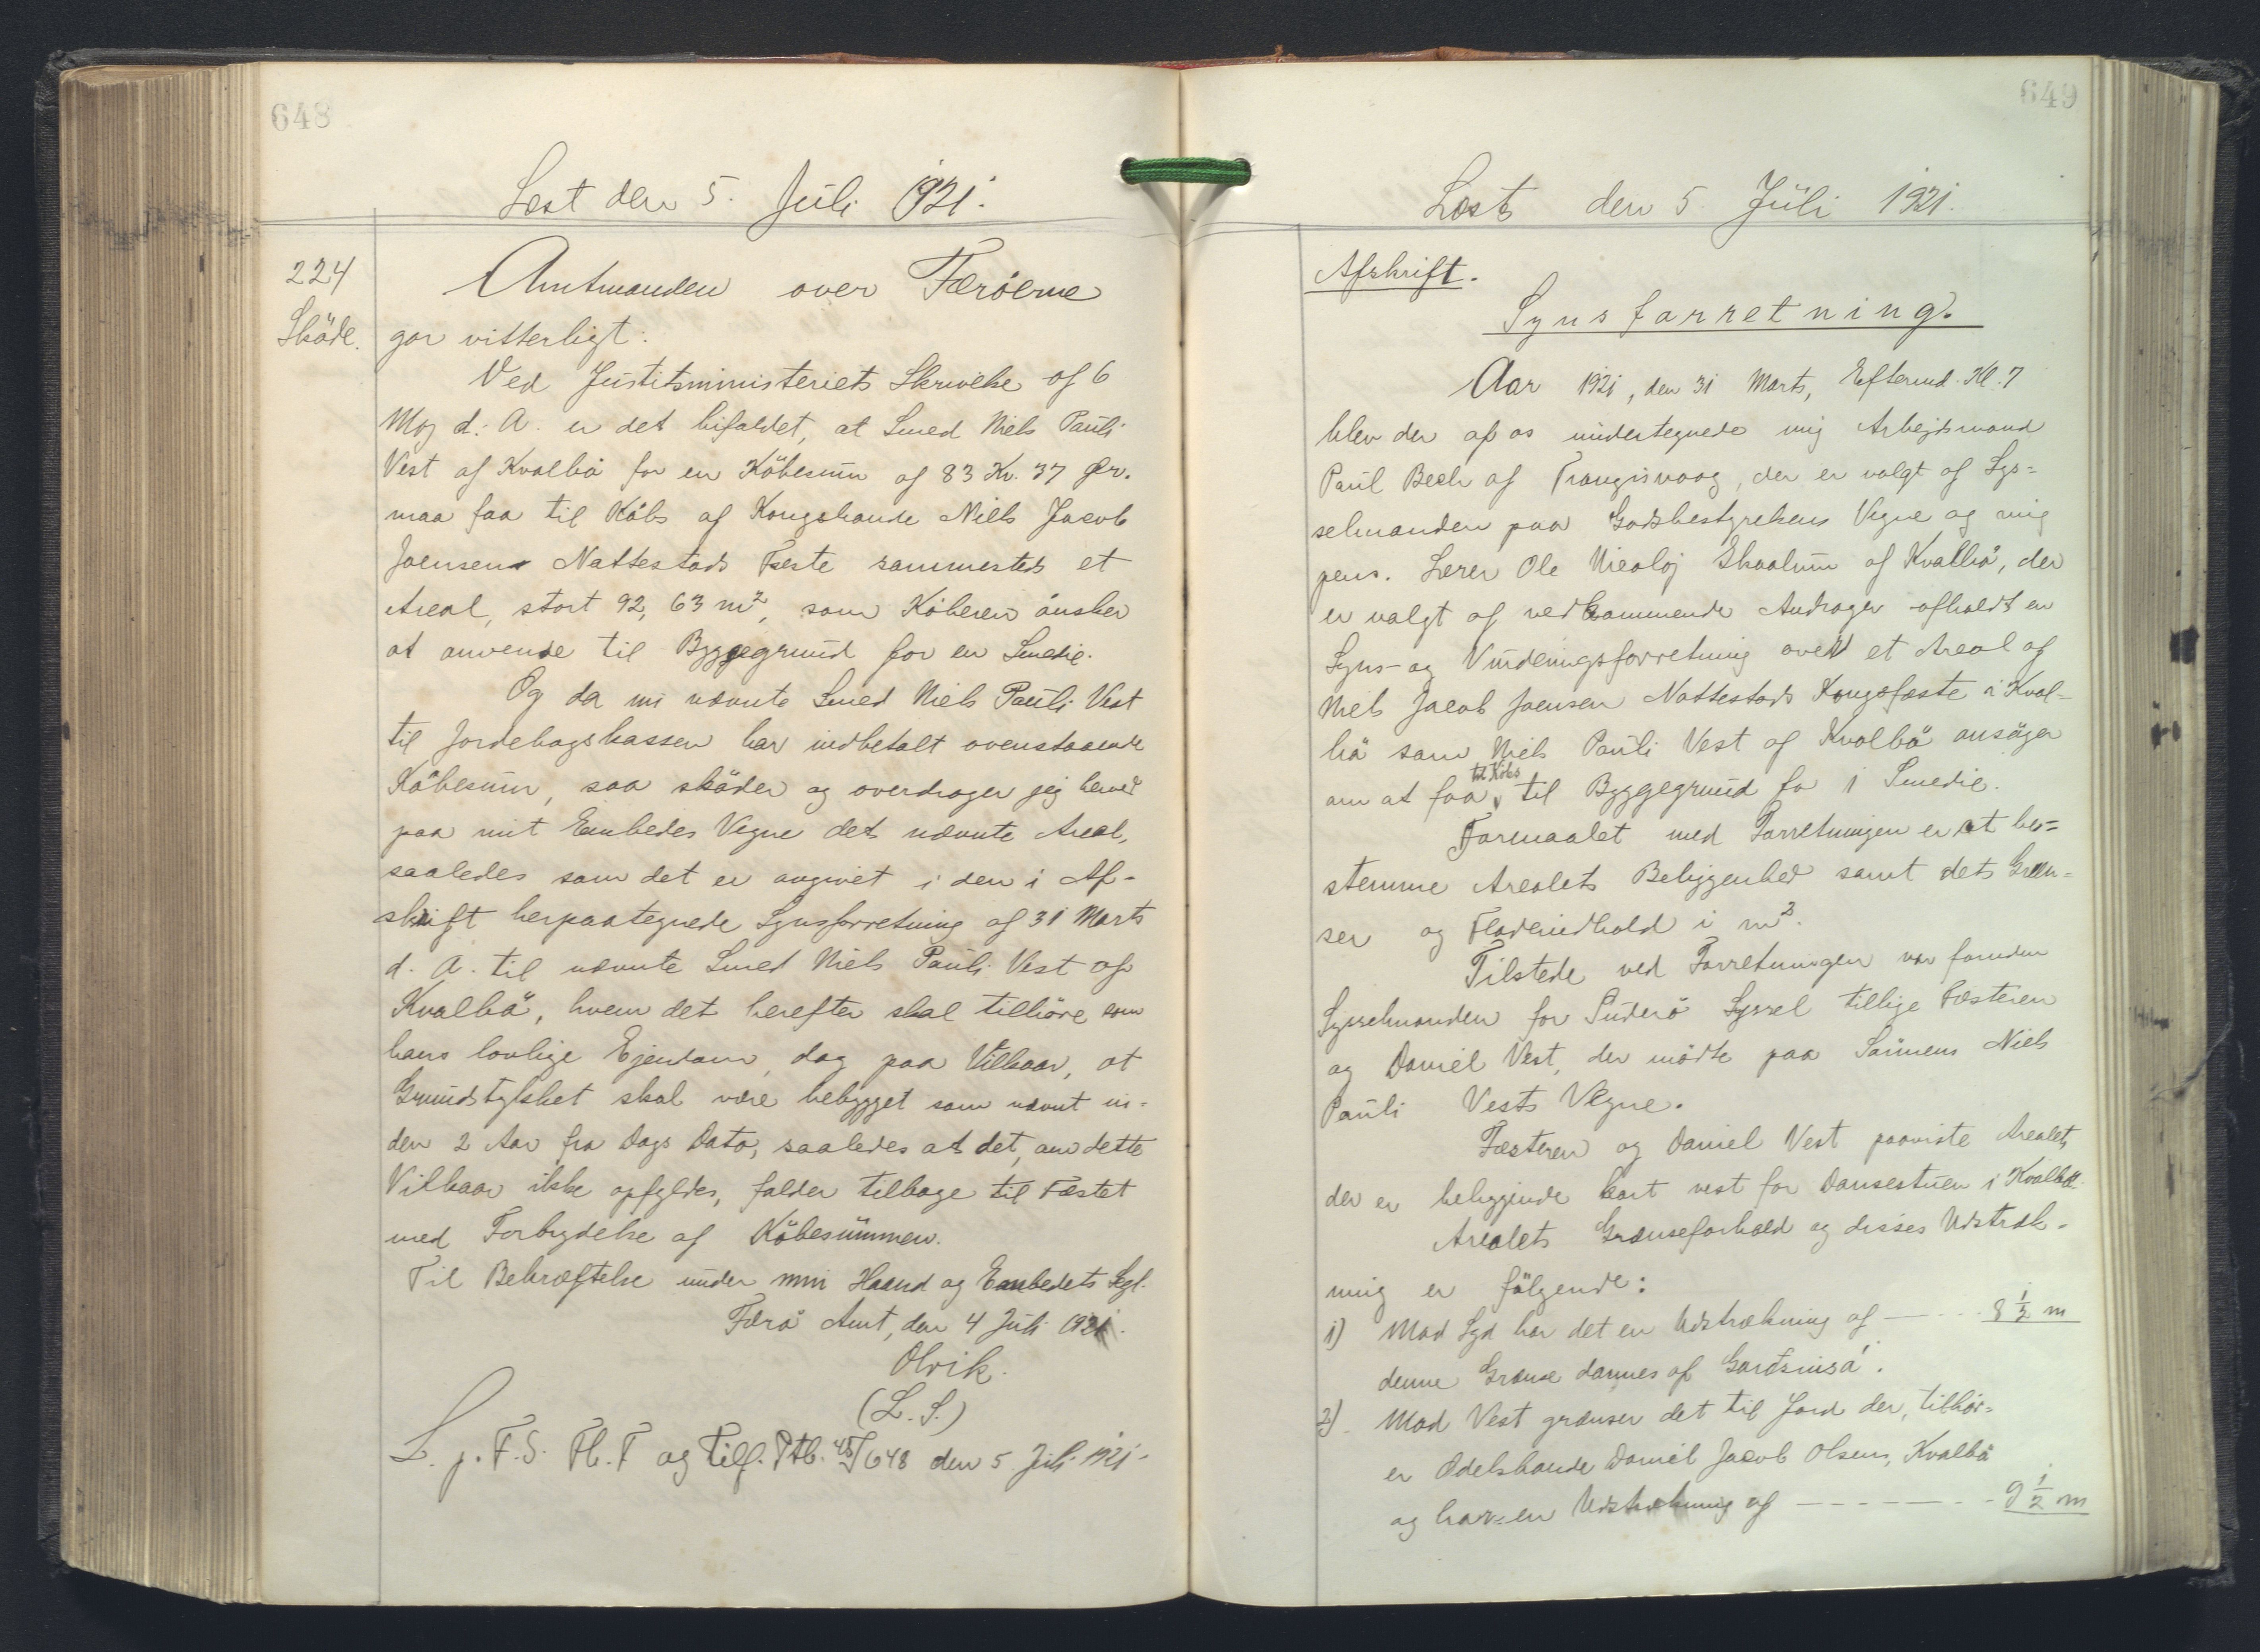 648
Læst den 5. Juli 1921.
224
Sköde.
Amtmanden over Færöerne
gör vitterligt:
Ved Justitsministeriets Skrivelse af 6
Maj d: A. er det bifaldet, at Smed Niels Pauli
Vest af Kvalbö for en Köbesum af 83 Kr. 37 Ør.
maa faa til Köbs af Kongsbonde Niels Jacob
Joensen Nattestads Fæste sammesteds et
Areal, stort 92,63 m², som Köberen önsker
at anvende til Byggegrund for en Smedie.
Og da nu nævnte Smed Niels Pauli Vest
til Jordebogskassen har indbetalt ovenstaaende
Köbesum, saa sköder og overdrager jeg herved
paa mit Embedes Vegne det nævnte Areal,
saaledes som det er angivet i den i Af-
skrift herpaategnede Synsforretning af 31 Marts
d. A. til nævnte Smed Niels Pauli Vest af
Kvalbö, hvem det herefter skal tilhöre som
hans lovlige Ejendom, dog paa Vilkaar, at
Grundstykket skal være bebygget som nævnt in-
den 2 Aar fra Dags Dato, saaledes at det, om dette
Vilkaar ikke opfyldes, falder tilbage til Fæstet
med Forbrydelse af Köbesummen.
Til Bekræftelse under min Haand og Embedets Segl.
Færö Amt, den 4 Juli 1921.
Olrik.
(L. S.)
L. p. F. S. Th. F og Tilf. Ptb. 648 den 5. Juli 1921.
649
Læst den 5 Juli 1921.
Afskrift.
Synsforretning.
Aar 1921, den 31 Marts, Eftermd. Kl. 7
blev der af os undertegnede mig Arbejdsmand
Paul Bech af Trangisvaag, der er valgt af Sys=
selmanden paa Godsbestyrelsens Vegne og mig
pens. Lærer Ole Nicolaj Skaalum af Kvalbö, der
er valgt af vedkommende Andrager afholdt en
Syns- og Vurderingsforretning over et Areal af
Niels Jacob Joensen Nattestads Kongsfæste i Kval-
bö som Niels Pauli Vest af Kvalbö ansöger
om at faa til Köbs til Byggegrund fo 1 Smedie.
Formaalet med Forretningen er at be=
stemme Arealets Beliggenhed samt dets Græn=
ser og Fladeindhold i m².
Tilstede ved Forretningen var foruden
Sysselmanden for Suderö Syssel tillige Fæsteren
og Daniel Vest, der mödte paa Sönnens Niels
Pauli Vests Vegne.
Fæsteren og Daniel Vest paaviste Arealet,
der er beliggende kort vest for Dansestuen i Kvalbö.
Arealets Grænseforhold og disses Udstræk-
ning er fölgende:
1) Mod Syd har det en Udstrækning af — - - - 8 ½ m
denne Grænse dannes af Garðsmisá.
2). Mod Vest grænser det til Jord der, tilhör=
er Odelsbonde Daniel Jacob Olsens, Kvalbö
og har en Udstrækning af - - - - - - - 9 ½ m